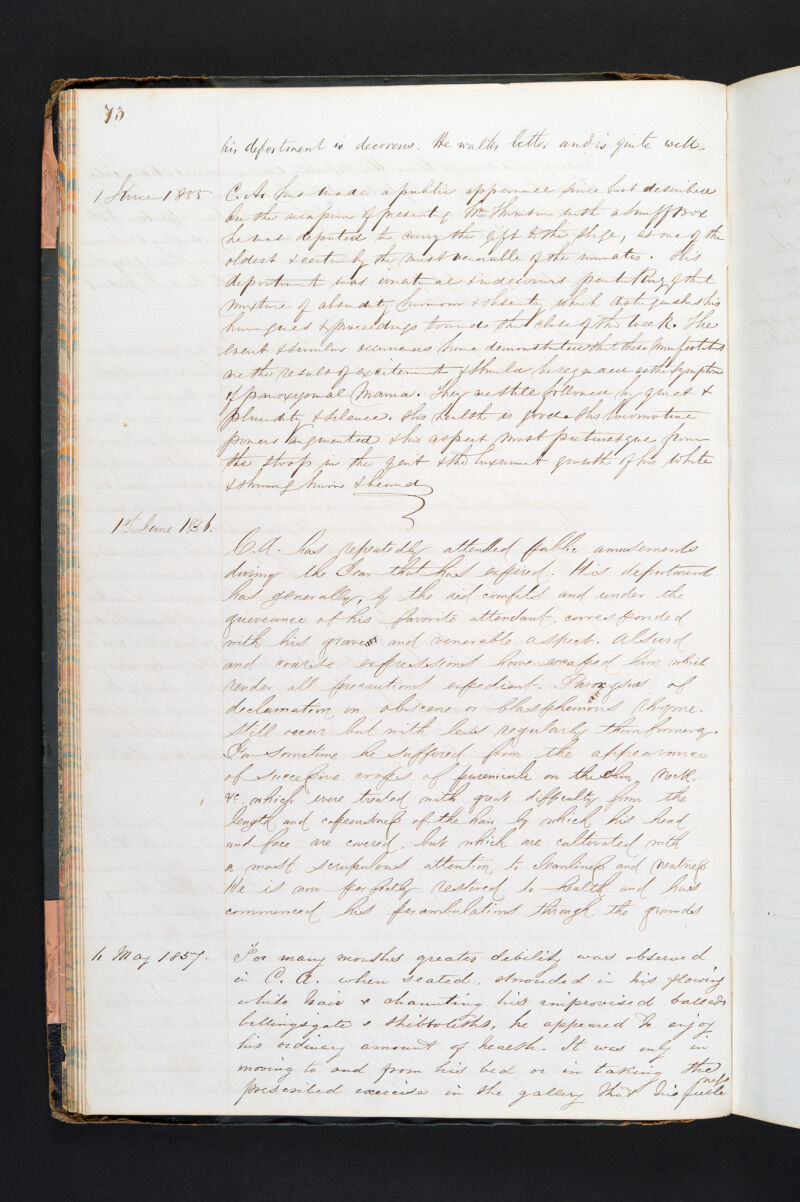 73
his deportment is decorous. He walks better and is quite well.
1 June 1855 C. A. has made a public appearance since last described
on the occasion of presenting Wm Thomson with a snuff box
he was deputed to carry the gift to the stage, as one of the
oldest & certainly the most venerable of the inmates. His
deportment was unnatural & indecorous partaking of that
mixture of absurdity humour & obscenity which distinguishes his
harangues & proceedings towards the close of the week. The
event & similar occurrences have demonstrated that these manifestations
are the result of excitement & should be regarded as the symptoms
of paroxysmal Mania. They are still followed by quiet &
placidity & silence. His health is good. His locomotive
powers augmented & his aspect most picturesque from
the stoop in the gait & the luxuriant growth of his white
& shining hair & beard
1st June 1856.
C. A. has repeatedly attended public amusements
during the Year that has expired. His deportment
has generally, by the aid and under the
of his favorite attendant, corresponded
with his grave and venerable aspect. Absurd
and coarse expressions have escaped him which
render all precautions expedient. Paroxysms of
declamation in obscene or blasphemous rhyme.
Still occur but with less regularity than formerly.
For sometime he suffered from the appearance
of successive crops of furunculi on the Chin, Neck.
&c. which were treated with great difficulty from the
length and copiousness of the hair by which his head
and face are covered. but which are cultivated with
a most scrupulous attention to cleanliness and neatness
He is now perfectly restored to health and has
commenced his perambulations through the grounds
6 May 1857. For many months greater debility was observed
in C. A. when seated, shrouded in his flowing
white hair & chaunting his improvised ballads
billingsgate & shibboleths, he appeared to enjoy
his ordinary amount of health. It was only in
moving to and from his bed or in taking the
prescribed exercise in the gallery that his feebleness